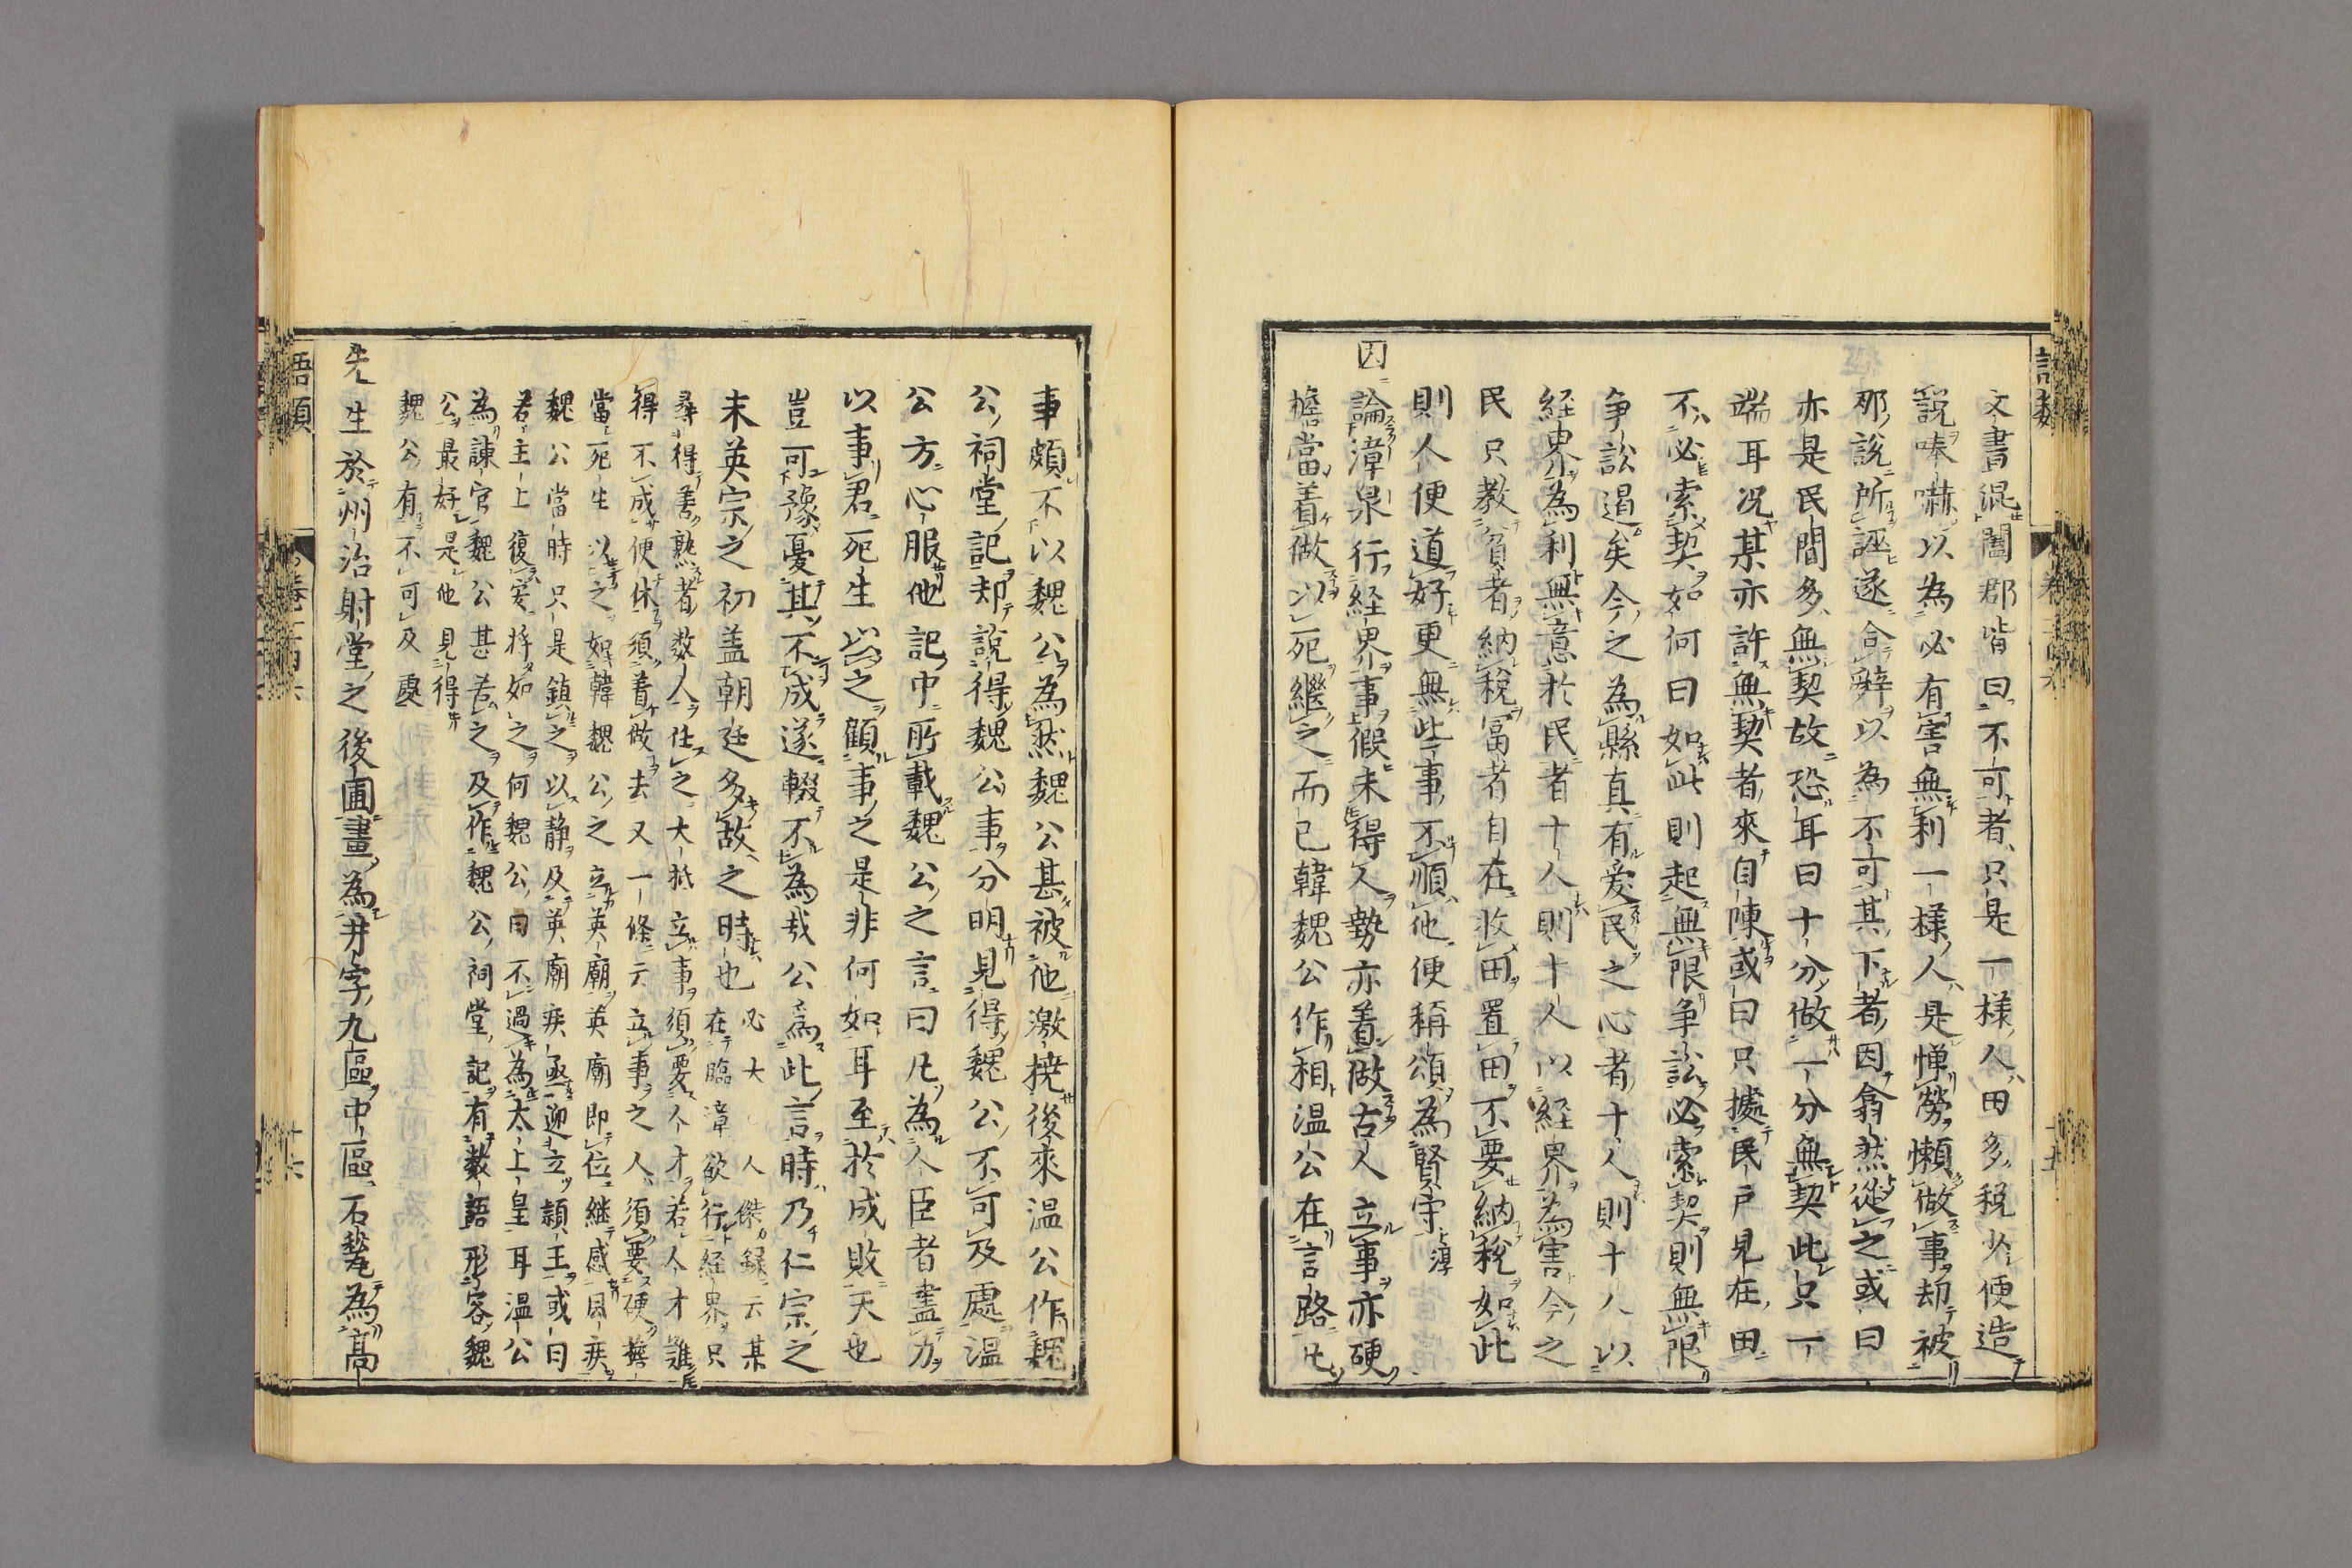 文書混闔郡皆曰不可者只是一様人田多稅少便造
說唪嚇以為必有害無利一様人是憚勞懶做事却被
那說所誣遂合辭以為不可其下者因翕然從之或曰
亦是民間多無契故恐耳曰十分做一分無契此只一
端耳况某亦許無契者來自陳或曰只據民戶見在田
不必索契如何曰如此則起無限争訟必索契則無限
争訟遏矣今之為縣真有愛民之心者十人則十人以
経界為利無意於民者十人則十人以経界為害今之
民只教貧者納稅冨者自在收田置田不要納稅如此
則人便道好更無此事不順他便稱頌為賢守淳
因論漳泉行経界事假未得人勢亦着做古人立事亦硬
擔當着做以死繼之而已韓魏公作相温公在言路凡
事頗不以魏公為然魏公甚被他激撓後來温公作魏
公祠堂記却說得魏公事分明見得魏公不可及處温
公方心服他記中所載魏公之言曰凡為人臣者盡力
以事君死生以之顧事之是非何如耳至於成敗天也
豈可豫憂其不成遂輟不為哉公為此言時乃仁宗之
末英宗之初盖朝廷多故之時也必大人傑録云某
在臨漳欲行経界只
尋得善熟者数人任之大抵立事須要人才若人才難
得不成便休須着做去又一條云立事之人須要硬擔
當死生以之如韓魏公之立英廟英廟即位継感風疾
魏公當時只是鎮之以静及英廟疾亟迎立頴王或曰
若主上復安将如之何魏公曰不過為太上皇耳温公
為諫官魏公甚若之及作魏公祠堂記有数語形容魏
公最好是他見得
魏公有不可及處
先生於州治射堂之後圃畫為井字九區中區石甃為高
語類
卷一百六
十六